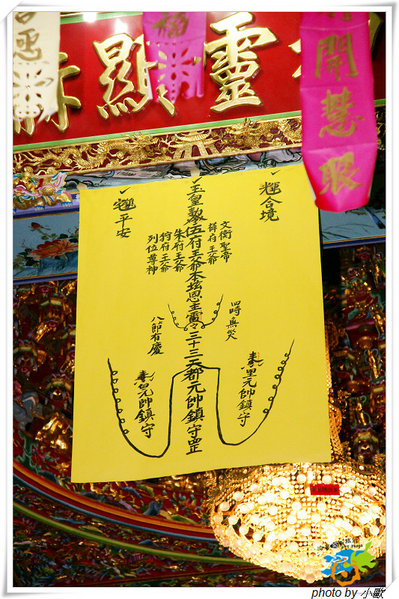 靈顯
開慧眼
合境
平安
玉皇敕伍府王爺本坛恩主靈令三十三天都元帥鎮守罡
文衡聖帝
薛府王爺
朱府王爺
狩府王爺
列位尊神
四時無災
八節有慶
元帥鎮守
元帥鎮守
photo by 小歐